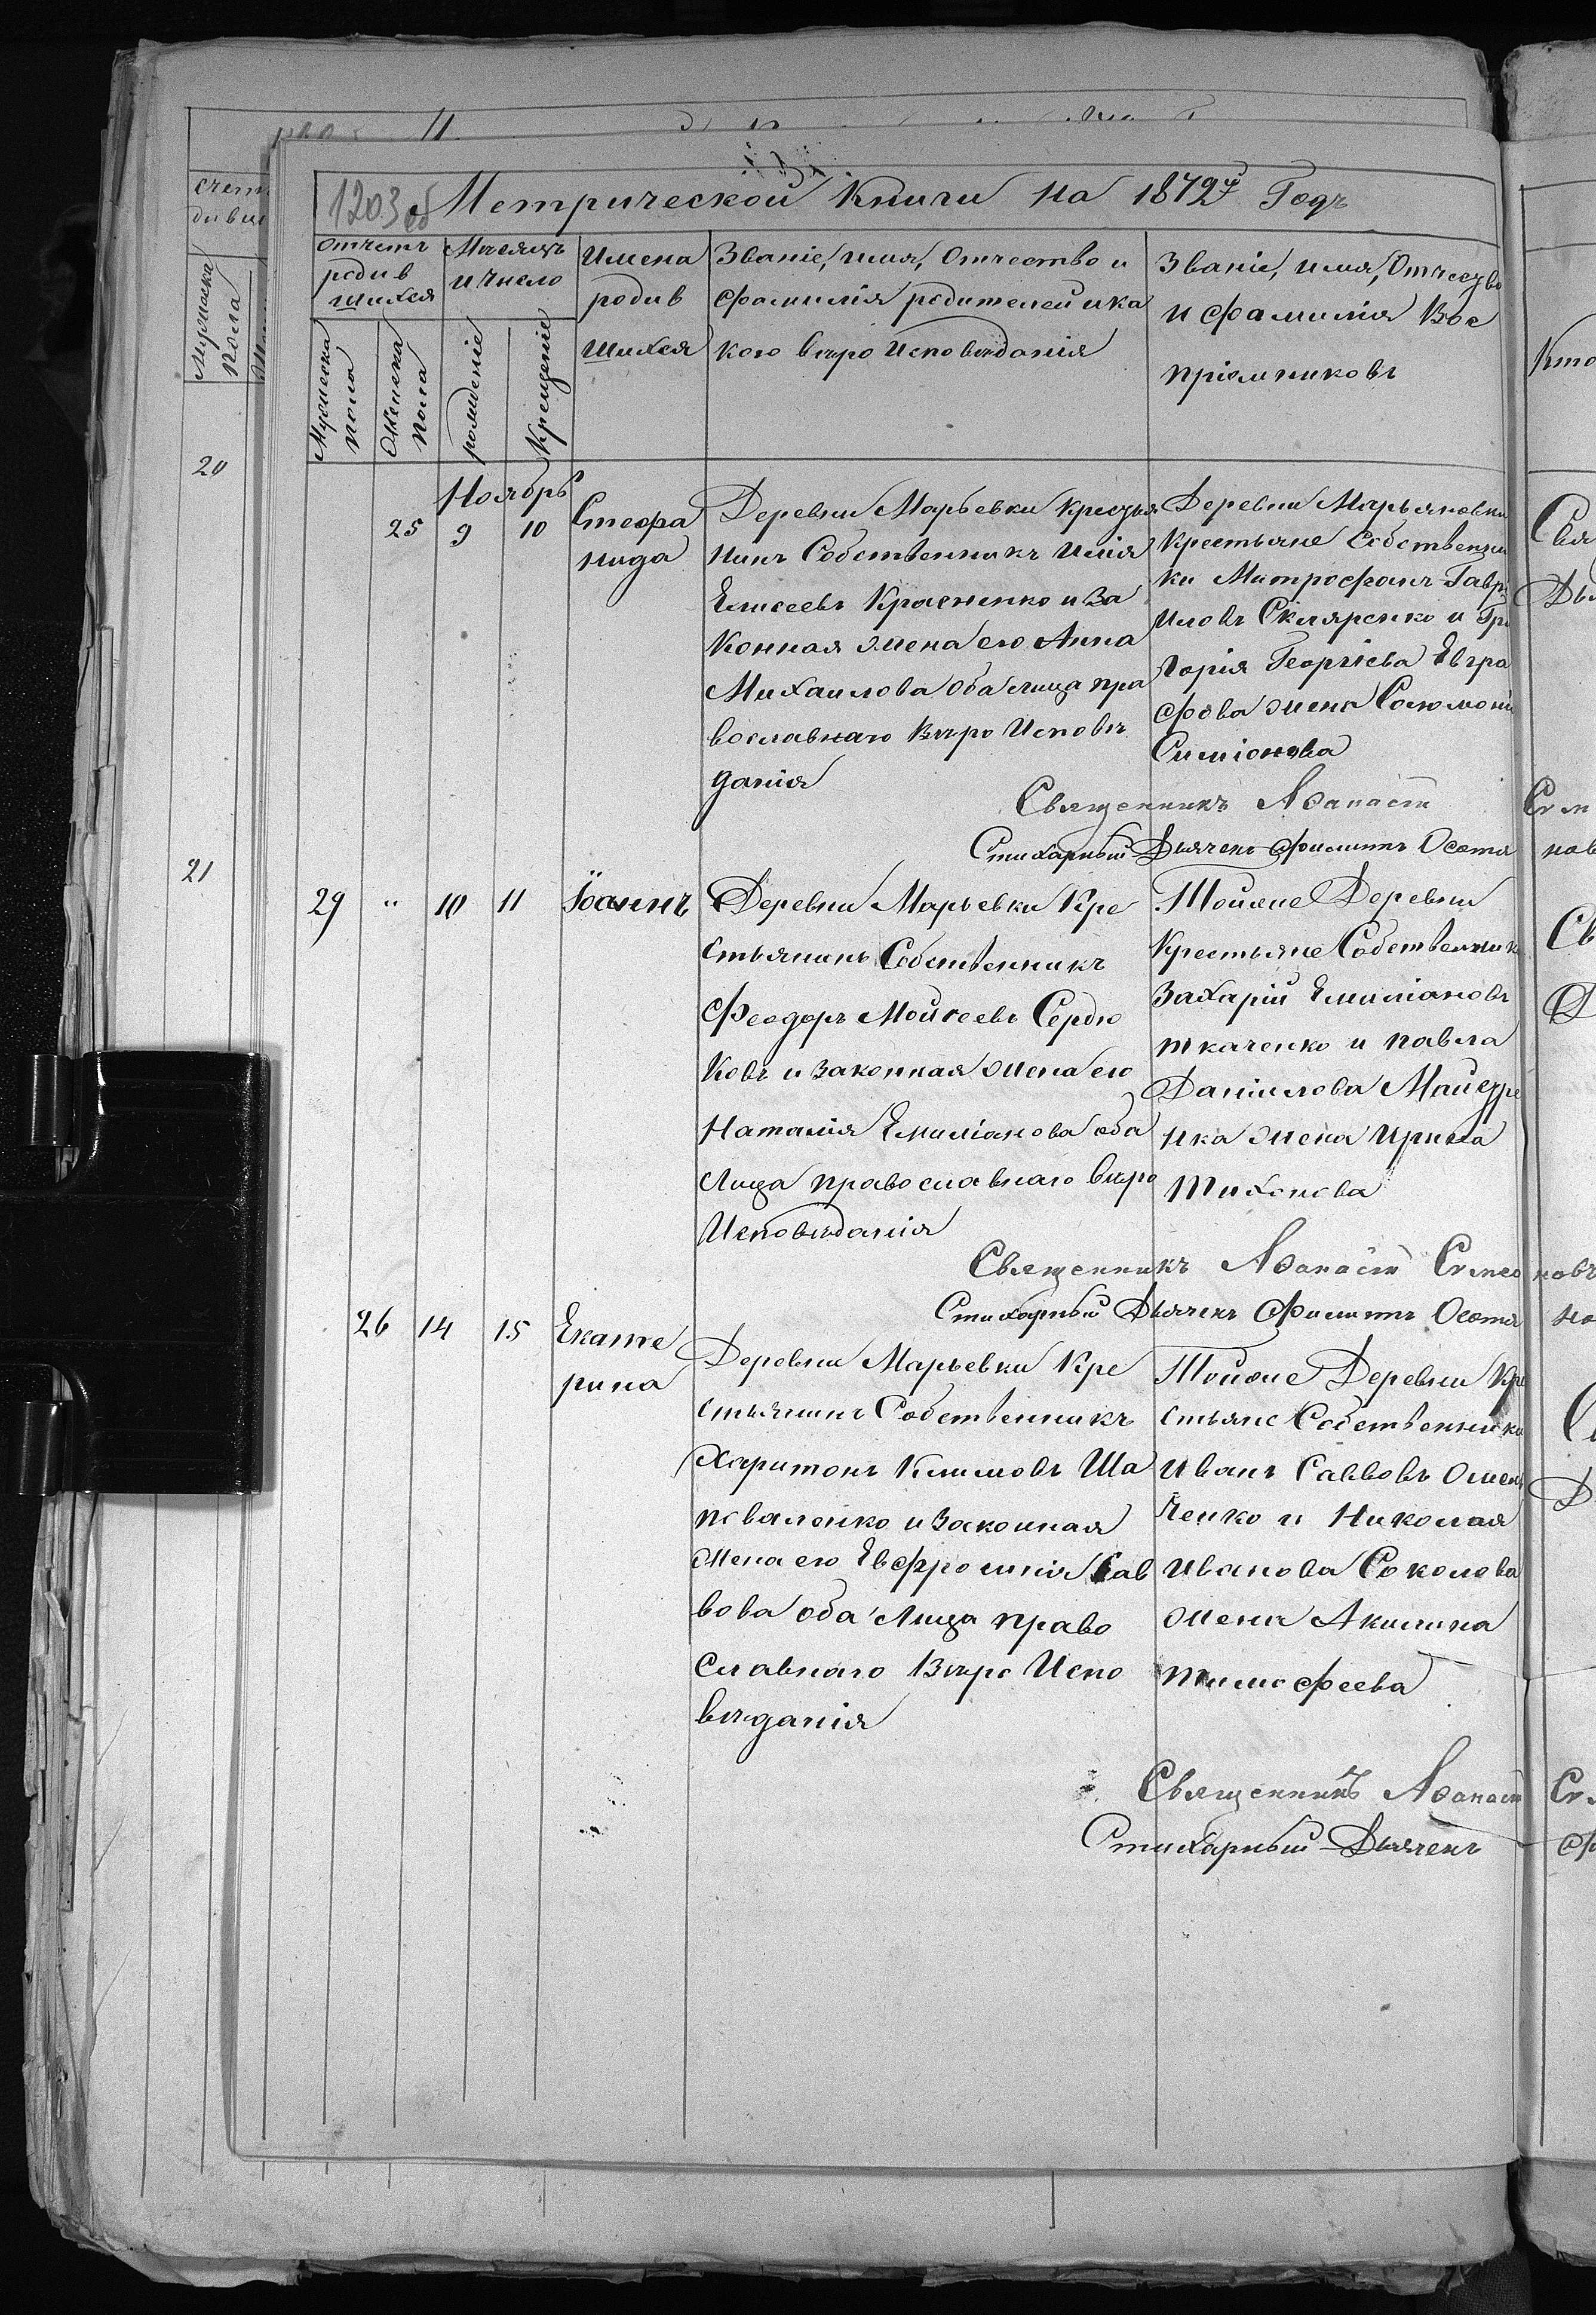 1203 об
Метрической Книги на 1872й Годъ
Счетъ
родив
шихся
Мѣсяцъ
и число
Имена
родив
шихся
Званіе, имя, Отчество и
фамилія родителей и ка
кого вѣро Исповѣданія
Званіе, имя, Отчество
и фамилія Вос
пріемниковъ
Мужеска
пола
Женска
пола
рожденіе
Крещеніе
Ноябрь
25 9 10
Стефа
нида
Деревни Марьевки Крестья
нинъ Собственникъ Илія
Елисеевъ Красненко и За
Конная жена его Анна
Михаилова оба лица пра
вославнаго Вѣро Исповѣ
данія
Деревни Марьяновки
Крестьяне Собственни
ки Митрофанъ Гавр
иловъ Скляренко и Гри
горія Георгіева Евгра
фова жена Соломони
Симіонова
Священникъ Аѳанасій
Стихарный Дьячекъ Филиппъ Осотя
29 " 10 11
Іоаннъ
Деревни Марьевки Кре
стьянинъ Собственникъ
Феодоръ Мойсеевъ Сердю
Ковъ и Законная жена его
Наталія Емиліанова оба
Лица православнаго вѣро
Исповѣданія
Тойже Деревни
Крестьяне Собственник
Захарій Емиліановъ
ткаченко и павла
Даніилова
нка жена Ирина
Тихонова
Священникъ Аѳанасій Симео
новъ
Стихарный Дьячекъ Филиппъ Осотя
26 14 15
Екате
рина
Деревни Марьевки Кре
стьянинъ Собственникъ
Харитонъ Климовъ Ша
поваленко и Законная
жена его Евфросинія Сав
вова оба Лица право
славнаго Вѣро Испо
вѣданія
Тойже Деревни Кре
стьяне Собственники
Иванъ Савовъ Омель
ченко и Николая
Иванова Соколова
жена Акилина
тимофеева
Священникъ Аѳанасій
Стихарный Дьячекъ
20
21